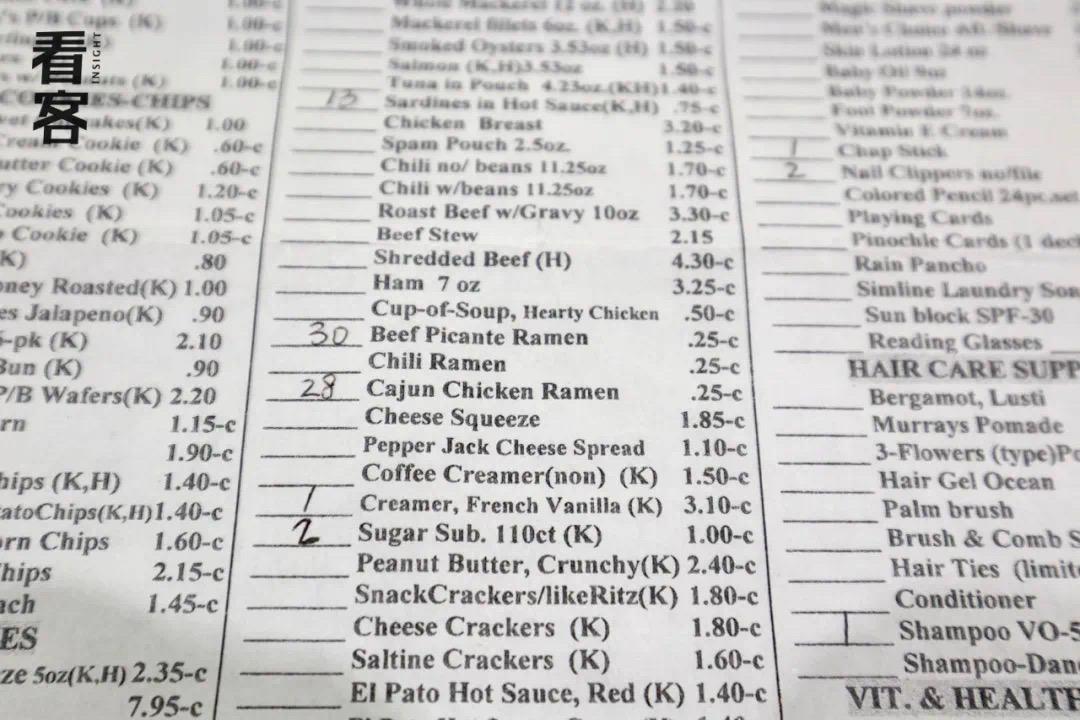 看客
INSIGHT
1.00-c
P/B Cups (K) 1.00-c
1.00-c
(K) 1.00-c
-CHIPS
akes(K) 1.00
Cream Cookie (K) .60-c
utter Cookie (K) .60-c
ry Cookies (K) 1.20-c
Cookies (K) 1.05-c
Cookie (K) 1.05-c
K) .80
oney Roasted(K) 1.00
es Jalapeno(K) .90
-pk (K) 2.10
Bun (K) .90
P/B Wafers(K) 2.20
rn 1.15-c
1.90-c
hips (K,H) 1.40-c
tatoChips(K,H)1.40-c
orn Chips 1.60-c
hips 2.15-c
ach 1.45-c
ES
ze 5oz(K,H) 2.35-c
7.95-c
Whole Mackerel 12 oz. (H) 2.20
Mackerel fillets 6oz. (K,H) 1.50-c
Smoked Oysters 3.53oz (H) 1.50-c
Salmon (K,H)3.53oz 1.50-c
Tuna in Pouch 4.23oz.(KH)1.40-c
13 Sardines in Hot Sauce(K,H) .75-c
Chicken Breast 3.20-c
Spam Pouch 2.5oz. 1.25-c
Chili no/ beans 11.25oz 1.70-c
Chili w/beans 11.25oz 1.70-c
Roast Beef w/Gravy 10oz 3.30-c
Beef Stew 2.15
Shredded Beef (H) 4.30-c
Ham 7 oz 3.25-c
Cup-of-Soup, Hearty Chicken .50-c
30 Beef Picante Ramen .25-c
Chili Ramen .25-c
28 Cajun Chicken Ramen .25-c
Cheese Squeeze 1.85-c
Pepper Jack Cheese Spread 1.10-c
Coffee Creamer(non) (K) 1.50-c
1 Creamer, French Vanilla (K) 3.10-c
2 Sugar Sub. 110ct (K) 1.00-c
Peanut Butter, Crunchy(K) 2.40-c
SnackCrackers/likeRitz(K) 1.80-c
Cheese Crackers (K) 1.80-c
Saltine Crackers (K) 1.60-c
El Pato Hot Sauce, Red (K) 1.40-c
Magic Shave powder
Skin Lotion
Baby Oil 9oz
Baby Powder
Foot Powder 7oz.
Vitamin E Cream
1 Chap Stick
2 Nail Clippers no/file
Colored Pencil 24pc.set
Playing Cards
Pinochle Cards (1 deck
Rain Pancho
Simline Laundry Soa
Sun block SPF-30
Reading Glasses
HAIR CARE SUPP
Bergamot, Lusti
Murrays Pomade
3-Flowers (type)Po
Hair Gel Ocean
Palm brush
Brush & Comb S
Hair Ties (limite
Conditioner
1 Shampoo VO-5
Shampoo-Dand
VIT. & HEALTH